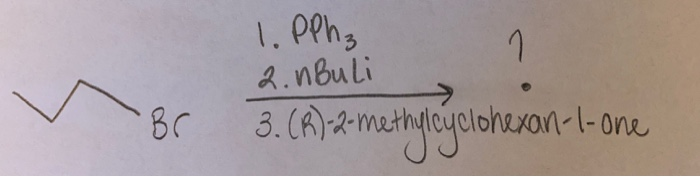 1. PPh3
2. nBuLi
?
Br
3. (R)-2-methylcyclohexan-1-one